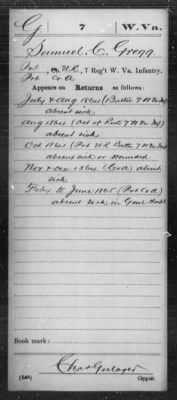 G | 7 | W. Va.
Samuel C. Gregg
Pvt., Co. U.R., 7 Reg't W. Va. Infantry.
Pvt. Co A
Appears on Returns as follows:
July & Aug 1864 (Battn 7 W Va Inf)
absent sick
Aug 1864 (Det of Battn 7 W Va Inf)
absent sick.
Oct 1864 (Pvt U.R. Battn 7 W Va Inf)
absent sick or wounded.
Nov & Dec 1864 (Co A) absent
sick
Feby to June 1865 (Pvt Co A)
absent sick in Genl Hosp
Book mark:
(546)
Copyist.